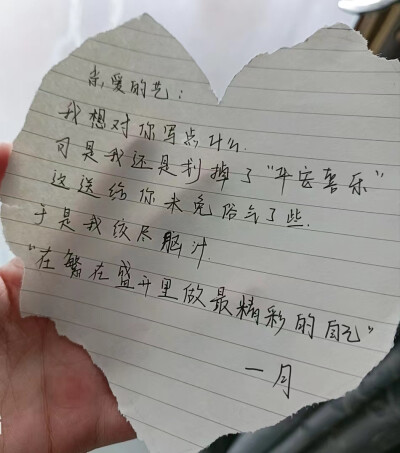 亲爱的艺：
我想对你写点什么.
可是我还是划掉了“平安喜乐”
这送给你未免俗气了些.
于是我绞尽脑汁.
“在繁在盛开里做最精彩的自己”
一月